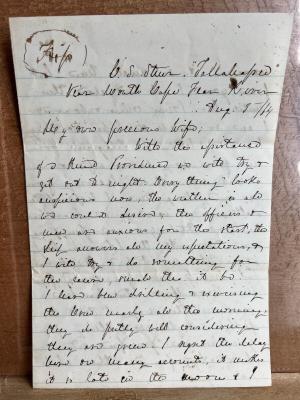 Ship
C. S. Str Tallahassee
Near Mouth Cape Fear River
Aug 5/64
My own precious Wife,
With the assistance
of a kind Providence we will try &
get out to night. Every thing looks
auspicious now, the weather is all
we could desire, the officers &
men are anxious for the start, the
ship answers all my expectations, &
I will try & do something for
the cause small tho it be.
I have been drilling & exercising
the crew nearly all the morning,
they do pretty well considering
they are green. I regret the delay
here on many accounts, it makes
it so late in the moon & I